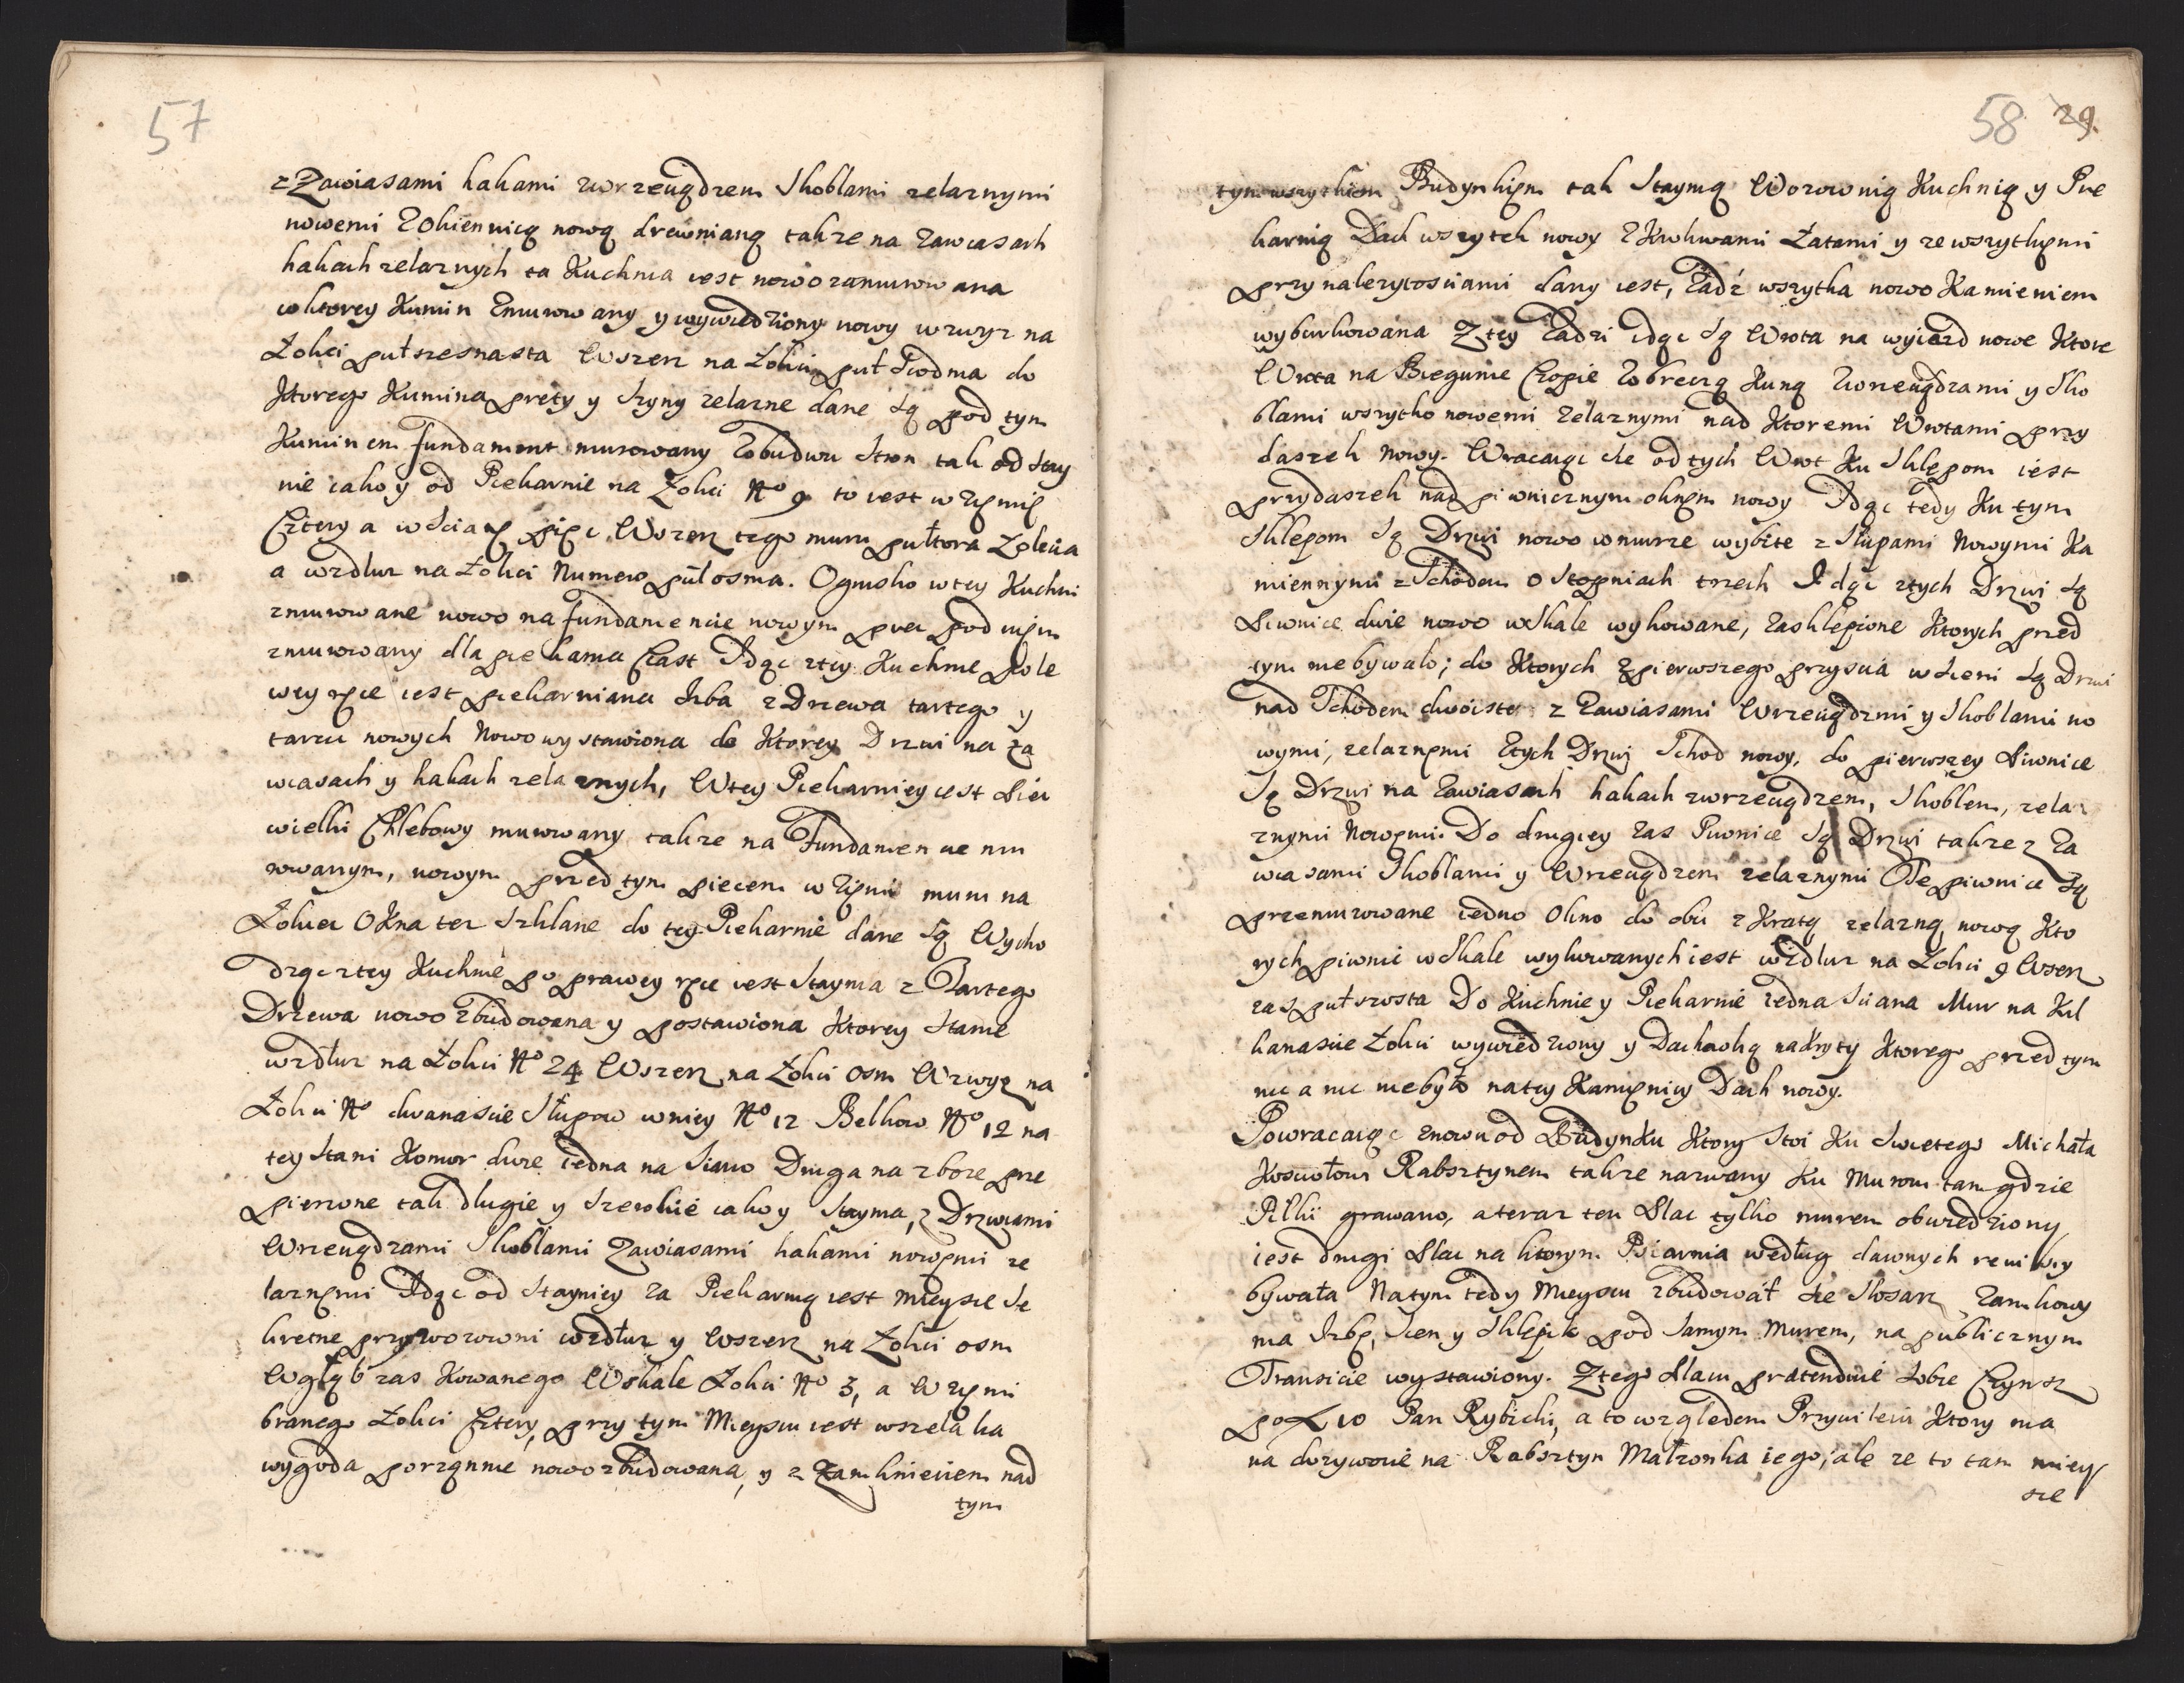 57
z Zawiasami hakami zwrzeuądzem Skoblami zelaznymi
nowemi Zokiennicą nową drewnianą takze na Zawiasach
hakach zelaznych ta Kuchnia iest nowo zamurowana
wktorey Kumin Zmurowany y wywiedziony nowy wzwyz na
Łokci pułszesnasta Wszerz na Łokci puł Siodma do
Ktorego Kumina prety y Szyny zelazne dane są pod tym
Kuminem fundament murowany Zobudwu Stron tak od Stay
nie iako y od Piekarnie na Łokci No 9 to iest w Zięmię
Cztery a wsciąz pięc Wszerz tego muru pułtora Łokcia
a wzdłuz na Łokci Numero puł osma. Ognisko wtey Kuchni
zmurowane nowo na fundamencie nowym piec pod nięm
zmurowany dla piekania Ciast Idąc ztey Kuchnie po le
wey ręce iest piekarniana Izba z Drzewa tartego y
tarcic nowych Nowo wystawiona do Ktorey Drzwi na za
wiasach y hakach zelaznych, Wtey Piekarniey iest Piec
wielki Chlebowy murowany takze na Fundamencie mu
rowanym, nowym przed tym piecem w Zięmi muru na
Łokiec Okna tez Szklane do tey Piekarnie dane są Wycho
dząc ztey Kuchnie po prawey ręce iest Stayma z Tartego
Drzewa nowo zbudowana y postawiona Ktorey Stanie
wzdłuz na Łokci No 24 Wszerz na Łokci Osm Wzwyz na
Łokci No dwanascie Słupow wniey No 12 Belkow No 12 na
tey Stani Komor dwie iedna na Siano Druga na zboze prze
pierzone tak długie y Szerokie iako y Stayma, z Drzwiami
Wrzeuądzami Skoblami Zawiasami hakami nowęmi ze
laznęmi Idąc od Stayniey za Piekarnią iest Mieysce Se
kretne przy wozowni wzdłuz y Wszerz na Łokci osm
Wgłąb zas Kowanego Wskale Łokci No 3, a W Zięmi
branego Łokci Cztery, przy tym Mieyscu iest wszelaka
wygoda porządnie nowo zbudowana, y z Zamknieniem nad
tym
58 29.
tym wszytkiem Budynkięm tak Staynią Wozownią Kuchnią y Pie
karnią Dach wszytek nowy z Krokwami Łatami y ze wszytkięmi
przynalezytosciami dany iest, Zadź wszytka nowo Kamieniem
wyburkowana Z tey Zadzi idąc są Wrota na wyiazd nowe Ktore
Wrota na Biegunie Czopie Zobręczą Kuną Zwrzeuądzami y Sko
blami wszytko nowemi Zelaznymi nad Ktoremi Wrotami przy
daszek Nowy. Wracaiąc sie od tych Wrot Ku Sklepom iest
przydaszek nad piwnicznym oknęm nowy Idąc tedy Ku tym
Sklepom są Drzwi nowo w murze wybite z Słupami Nowymi Ka
miennymi z Schodem o Stopniach trzech Idąc ztych Drzwi są
Piwnice dwie nowo w Skale wykowane, Zasklepione Ktorych przed
tym niebywało; do Ktorych z pierwszego przyscia w Sieni są Drzwi
nad Schodem dwoiste z Zawiasami Wrzeuądzmi y Skoblami no
wymi, zelaznęmi Ztych Drzwi Schod nowy, do pierwszey Piwnice
Są Drzwi na Zawiasach hakach zwrzeuądzem, Skoblem, zela
znymi Nowęmi. Do drugiey zas Piwnice są Drzwi takze z Za
wiasami Skoblami y Wrzeuądzem zelaznymi Te piwnice są
przemurowane iedno Okno do obu z Kratą zelazną nową Kto
rych piwnic w Skale wykowanych iest wzdłuz na Łokci 9 Wszerz
zas puł szosta Do Kuchnie y Piekarnie iedna Sciana Mur na Kil
kanascie Łokci wywiedziony y Dachowką nakryty Ktorego przed tym
nic a nic niebyło na tey Kamięnicy Dach nowy.
Powracaiąc znowu od Budynku Ktory Stoi Ku Swietego Michała
Koscołowi Rabsztynem takze nazwany Ku Murom tam gdzie
Piłki grawano, a teraz ten Plac tylko murem obwiedziony
iest drugi Plac na ktorym Psiarnia według dawnych rewizÿ
bywała Na tym tedy Mieyscu zbudował sie Slosarz Zamkowy
ma Izbę, Sien y Sklepik pod samym Murem, na publicznym
Transicie wystawiony. Z tego Placu prætenduie sobie Czynsz
po 10 Pan Rybicki, a to względem Przywileiu Ktory ma
na dozywocie na Rabsztyn Małzonka iego; ale ze to tam miey
sce